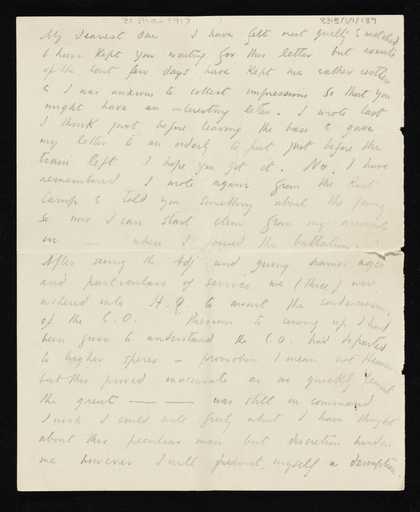 31 Mar 1917
My Dearest One I have felt most guilty & wretched
to have kept you waiting for this letter but events
of the last few days have kept me rather restless
& I was anxious to collect impressions so that you
might have an interesting letter. I wrote last
I think just before leaving the base & gave
my letter to an orderly to post just before the
train left I hope you got it. No, I have
remembered I wrote again from the Rest
Camp & told you something about the journey
so now I can start clean from my arrival
in — where I joined the battalion.
After seeing the Adj and giving names ages
and particulars of service we (three) were
ushered into H.Q to await the condescension
of the C.O. Previous to coming up I had
been given to understand the C.O. had departed
to higher spheres – promotion I mean not Heaven
but this proved inaccurate as we quickly learnt
the great — — was still in command
I wish I could write freely what I have thought
about this peculiar man but discretion bids
me however I will permit myself a description